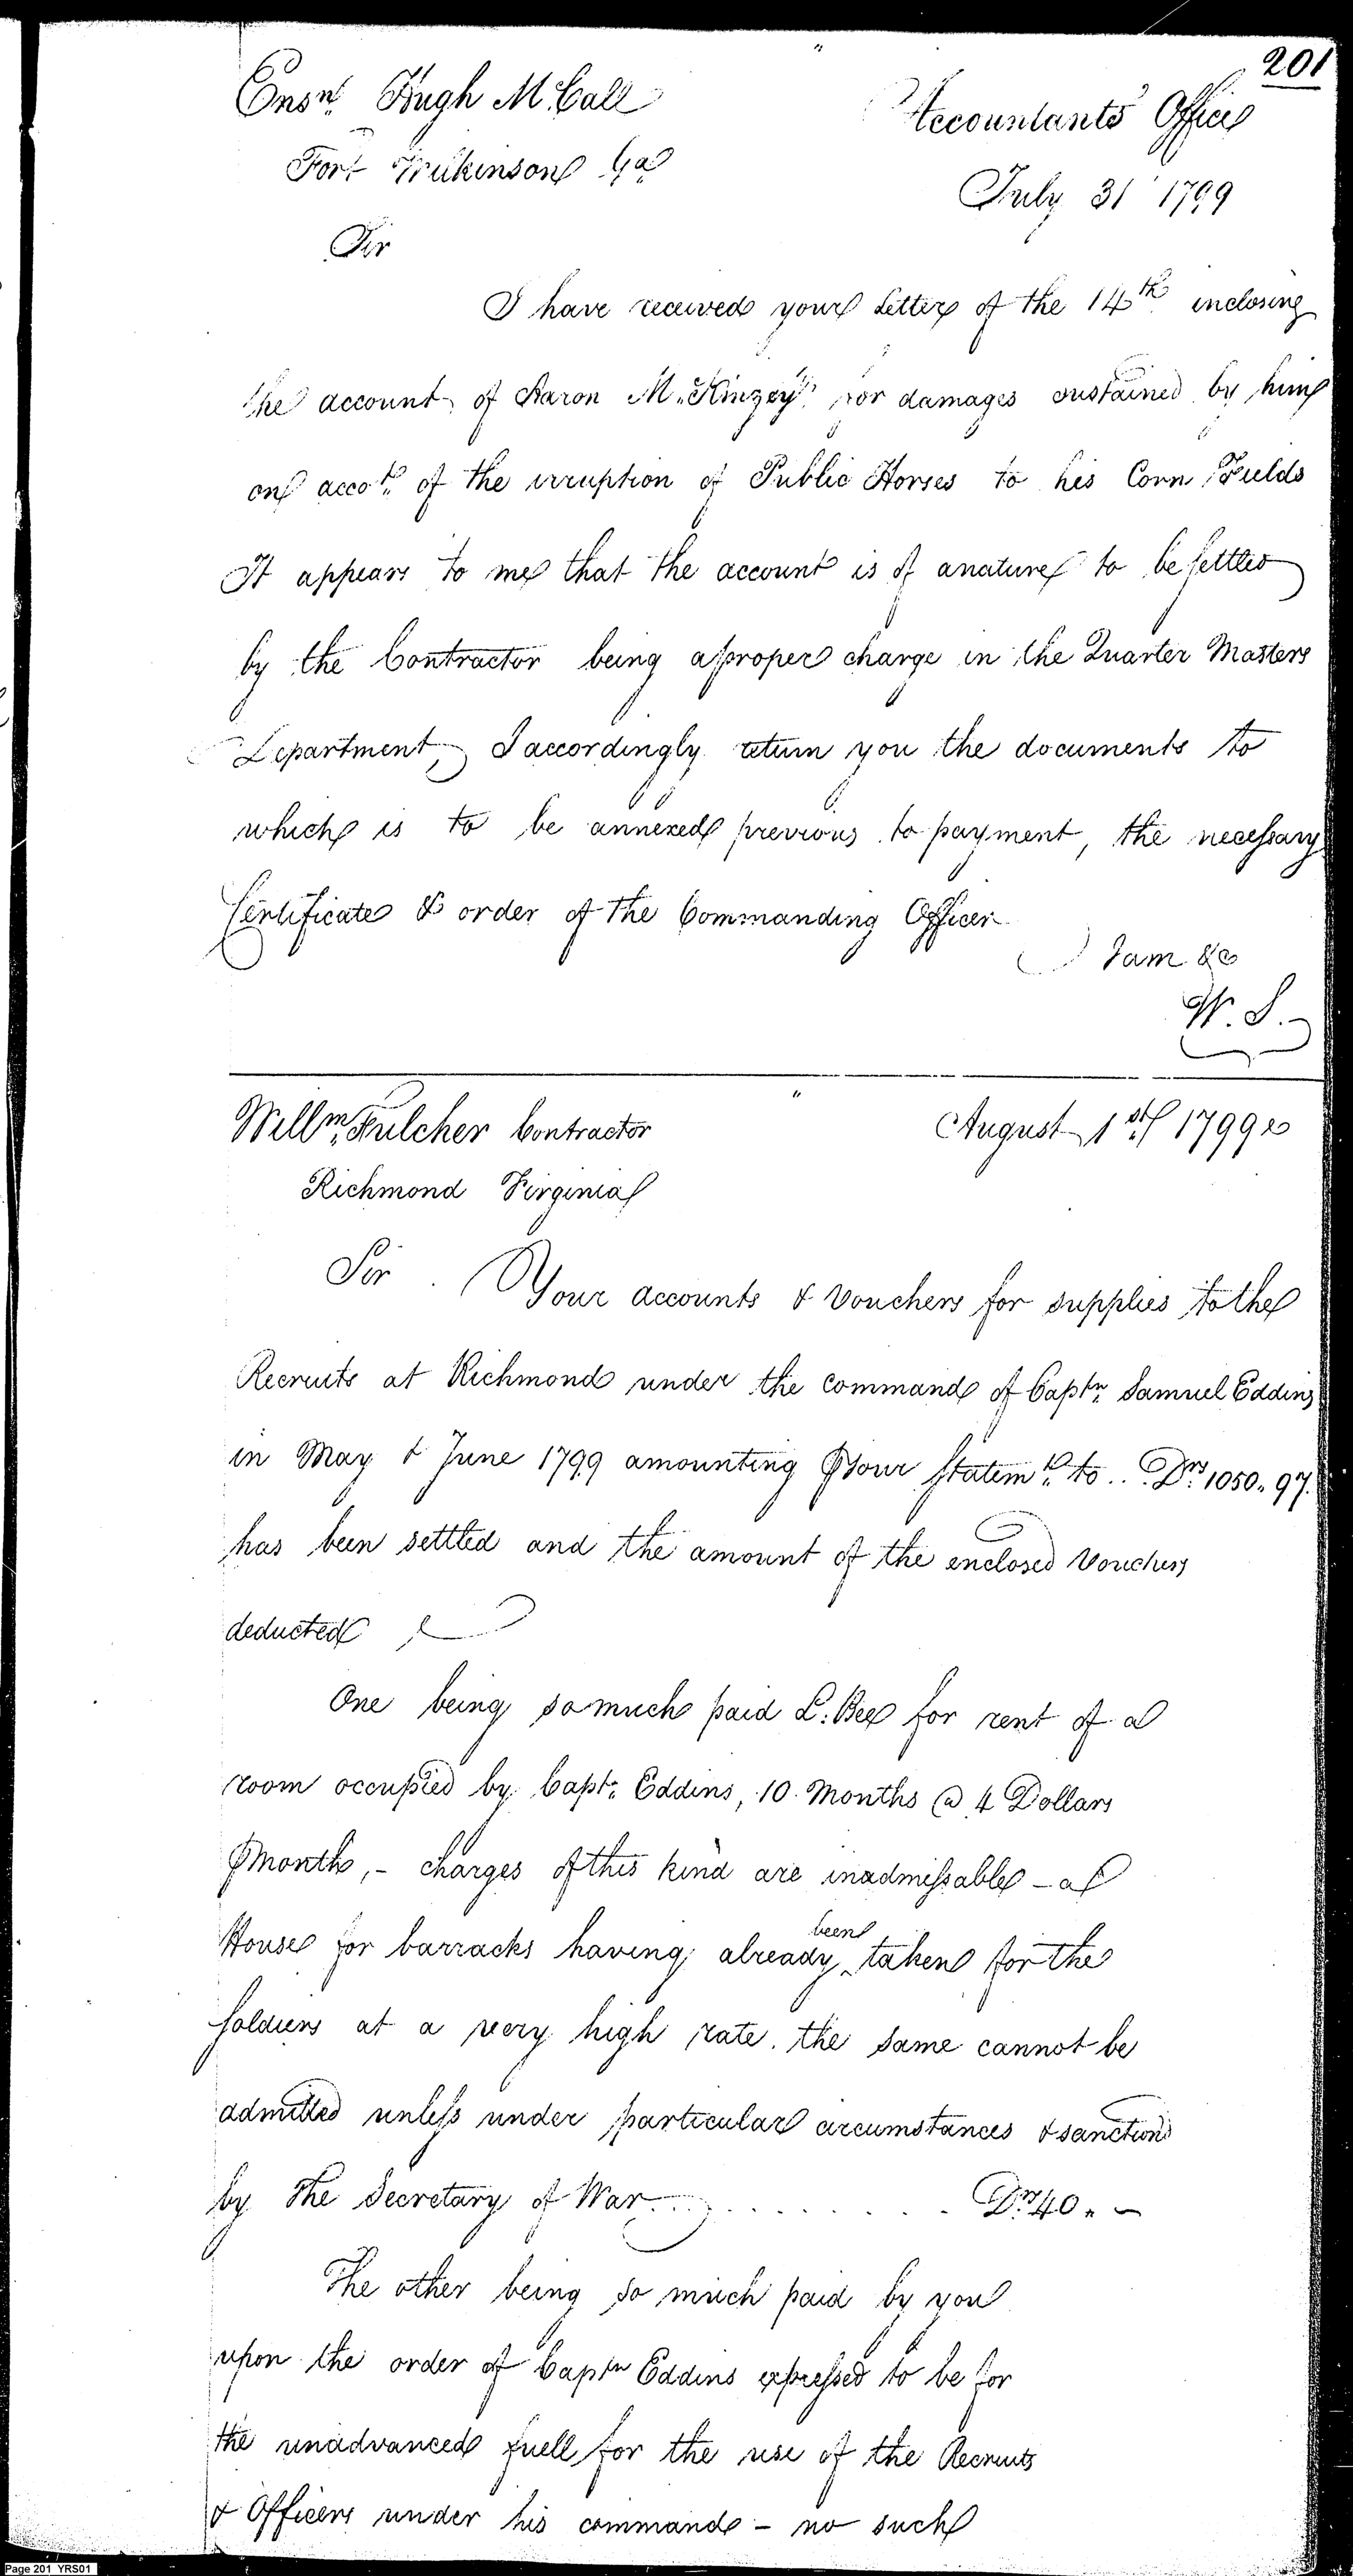 201
Ensn. Hugh McCall
Accountants Office
Fort Wilkinson Ga
July 31 1799
Sir
I have received your Letter of the 14th inclosing
the account of Aaron M.Kinzey for damages sustained by him
on accot. of the irruption of Public Horses to his Corn Fields
It appears to me that the account is of a nature to be settled
by the Contractor being a proper charge in the Quarter Masters
Department, I accordingly return you the documents to
which is to be annexed previous to payment, the necessary
Certificate & order of the Commanding Officer
I am &c
W. S.
Willm. Fulcher Contractor
August 1st 1799
Richmond Virginia
Sir . Your accounts & Vouchers for supplies to the
Recruits at Richmond under the command of Captn. Samuel Eddins
in May & June 1799 amounting ⅌ your Statemt. to .. Drs. 1050.97.
has been settled and the amount of the enclosed Vouchers
deducted
One being so much paid L: Bee for rent of a
room occupied by Capt. Eddins, 10 Months @ 4 Dollars
⅌ Month, - charges of this kind are inadmissable - a
House for barracks having already been taken for the
soldiers at a very high rate. the same cannot be
admitted unless under particular circumstances & sanction
by the Secretary of War . . . . . . . . . . Drs. 40. -
The other being so much paid by you
upon the order of Captn Eddins expressed to be for
the unadvanced fuell for the use of the Recruits
& Officers under his command - no such
Page 201 YRS01